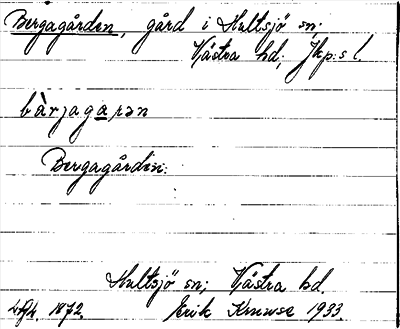 Bergagården, gård i Hultsjö sn;
Västra hd; Jkp:s l.
bàrjagarən
Bergagården:
Hultsjö sn; Västra hd.
1872. Erik Kruuse 1933.